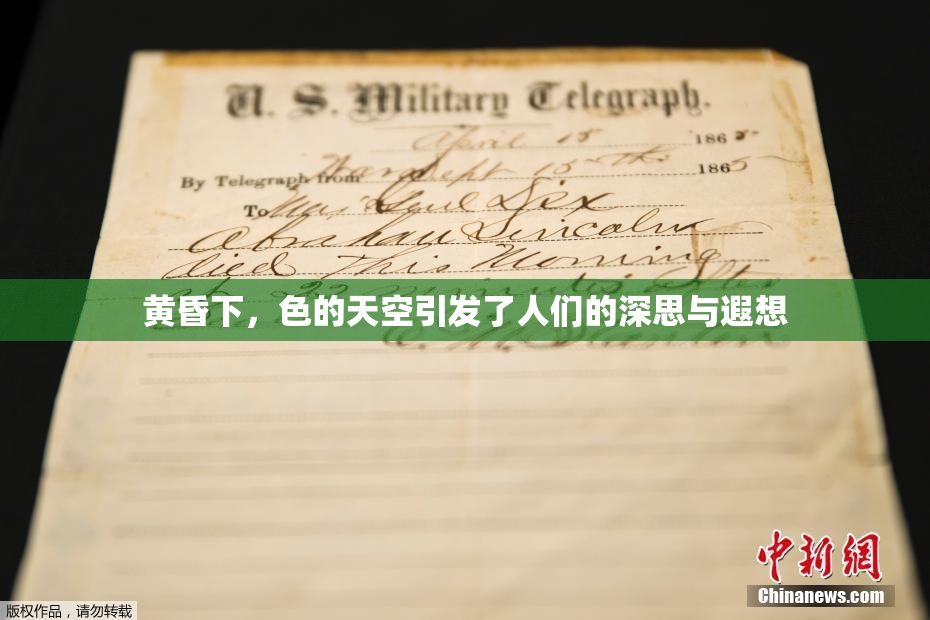 U. S. Military Telegraph.
April 15 1865
By Telegraph from War Dept 15th 1865
To Maj Genl Dix
Abraham Lincoln
died This Morning
at 22 minutes after
黄昏下，色的天空引发了人们的深思与遐想
E. M. Stanton
中新网
Chinanews.com
版权作品，请勿转载